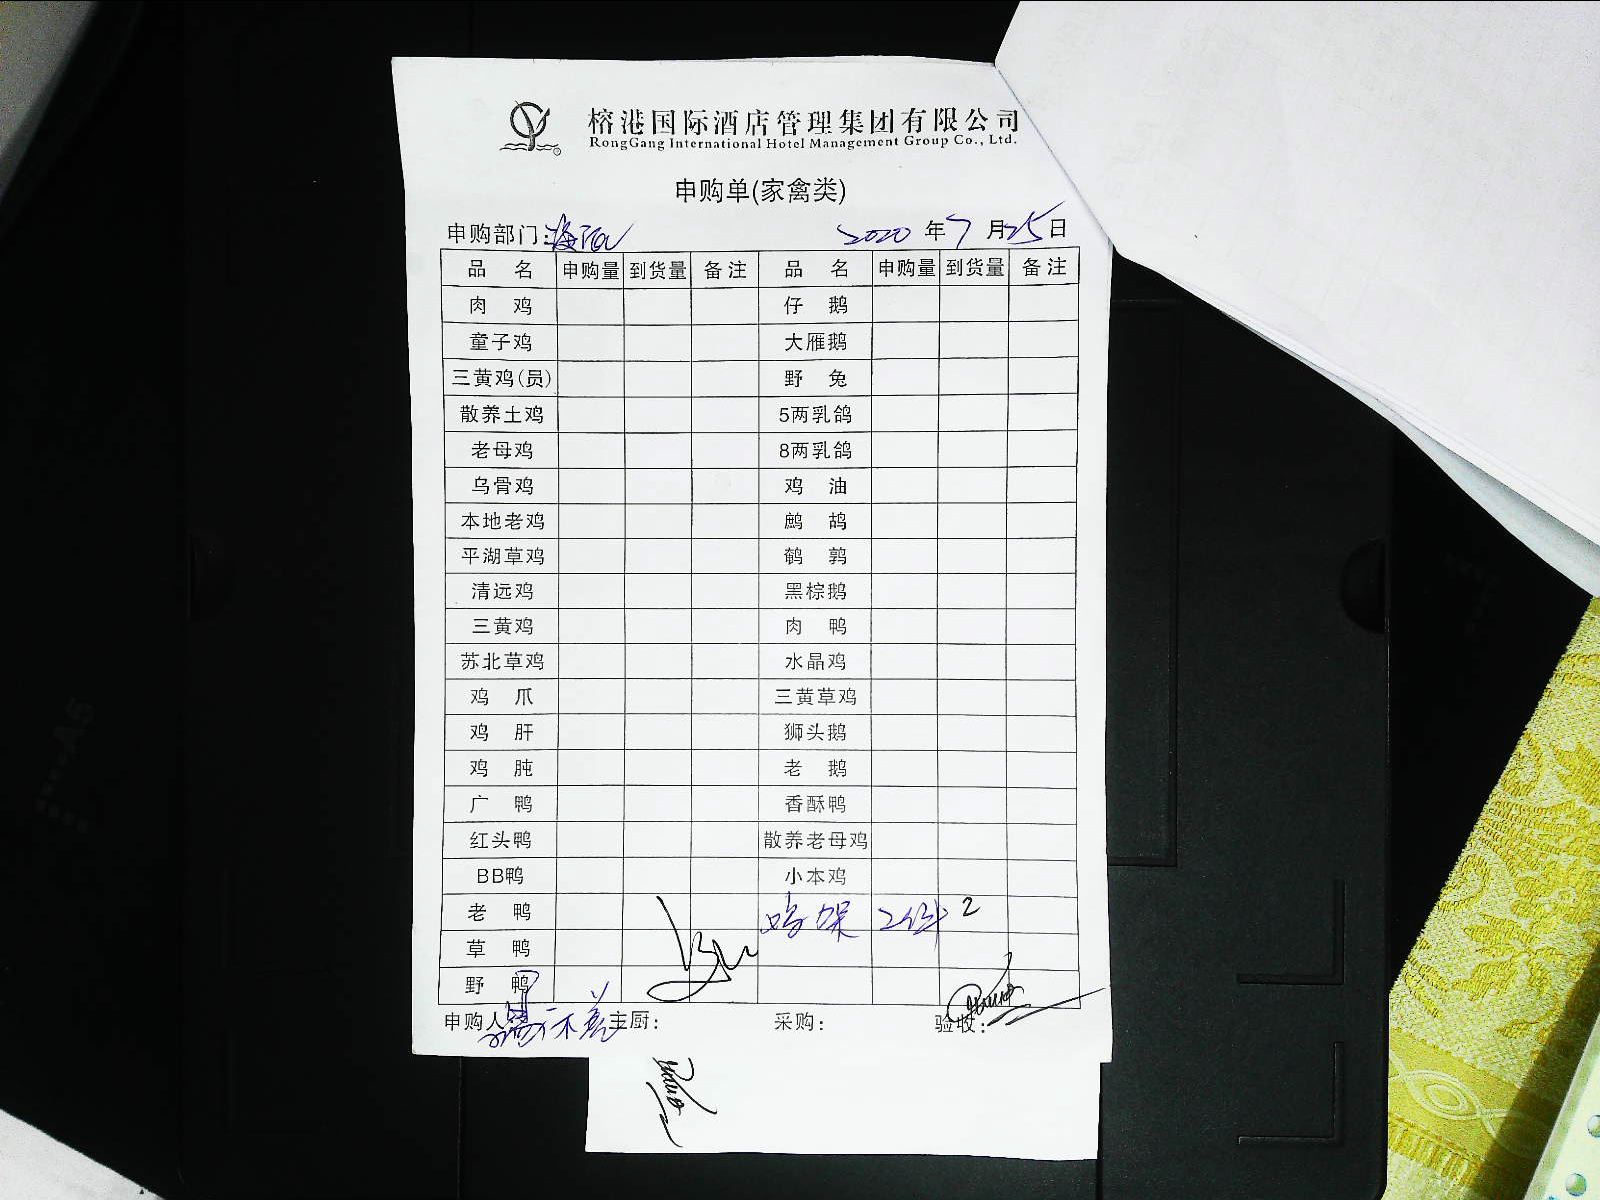 榕港国际酒店管理集团有限公司
RongGang International Hotel Management Group Co., Ltd.
申购单(家禽类)
申购部门: 2020 年 7 月 25 日
品 名 申购量 到货量 备注 品 名 申购量 到货量 备注
肉 鸡 仔 鹅
童子鸡 大雁鹅
三黄鸡(员) 野 兔
散养土鸡 5两乳鸽
老母鸡 8两乳鸽
乌骨鸡 鸡 油
本地老鸡 鹧 鸪
平湖草鸡 鹌 鹑
清远鸡 黑棕鹅
三黄鸡 肉 鸭
苏北草鸡 水晶鸡
鸡 爪 三黄草鸡
鸡 肝 狮头鹅
鸡 肫 老 鹅
广 鸭 香酥鸭
红头鸭 散养老母鸡
BB鸭 小本鸡
老 鸭 鸡架 2 2
草 鸭
野 鸭
申购人 主厨: 采购: 验收: